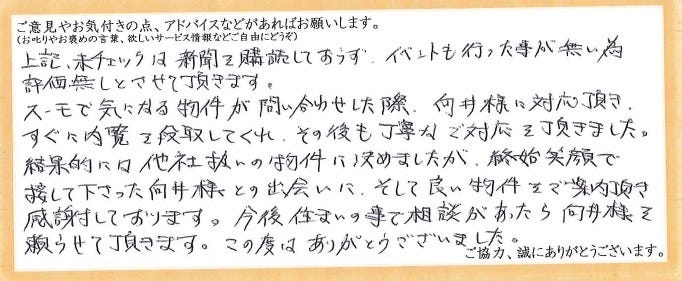 ご意見やお気付きの点、アドバイスなどがあればお願いします。
(お叱りやお褒めの言葉、欲しいサービス情報などご自由にどうぞ)
上記、未チェックは新聞を購読しておらず、イベントも行った事が無い為
評価無しとさせて頂きます。
スーモで気になる物件が問い合わせした際、向井様に対応頂き、
すぐに内覧を段取してくれ、その後も丁寧なご対応を頂きました。
結果的には他社扱いの物件に決めましたが、終始笑顔で
接して下さった向井様との出会いに、そして良い物件をご案内頂き
感謝しております。今後住まいの事で相談があったら向井様を
頼らせて頂きます。この度はありがとうございました。
ご協力、誠にありがとうございます。